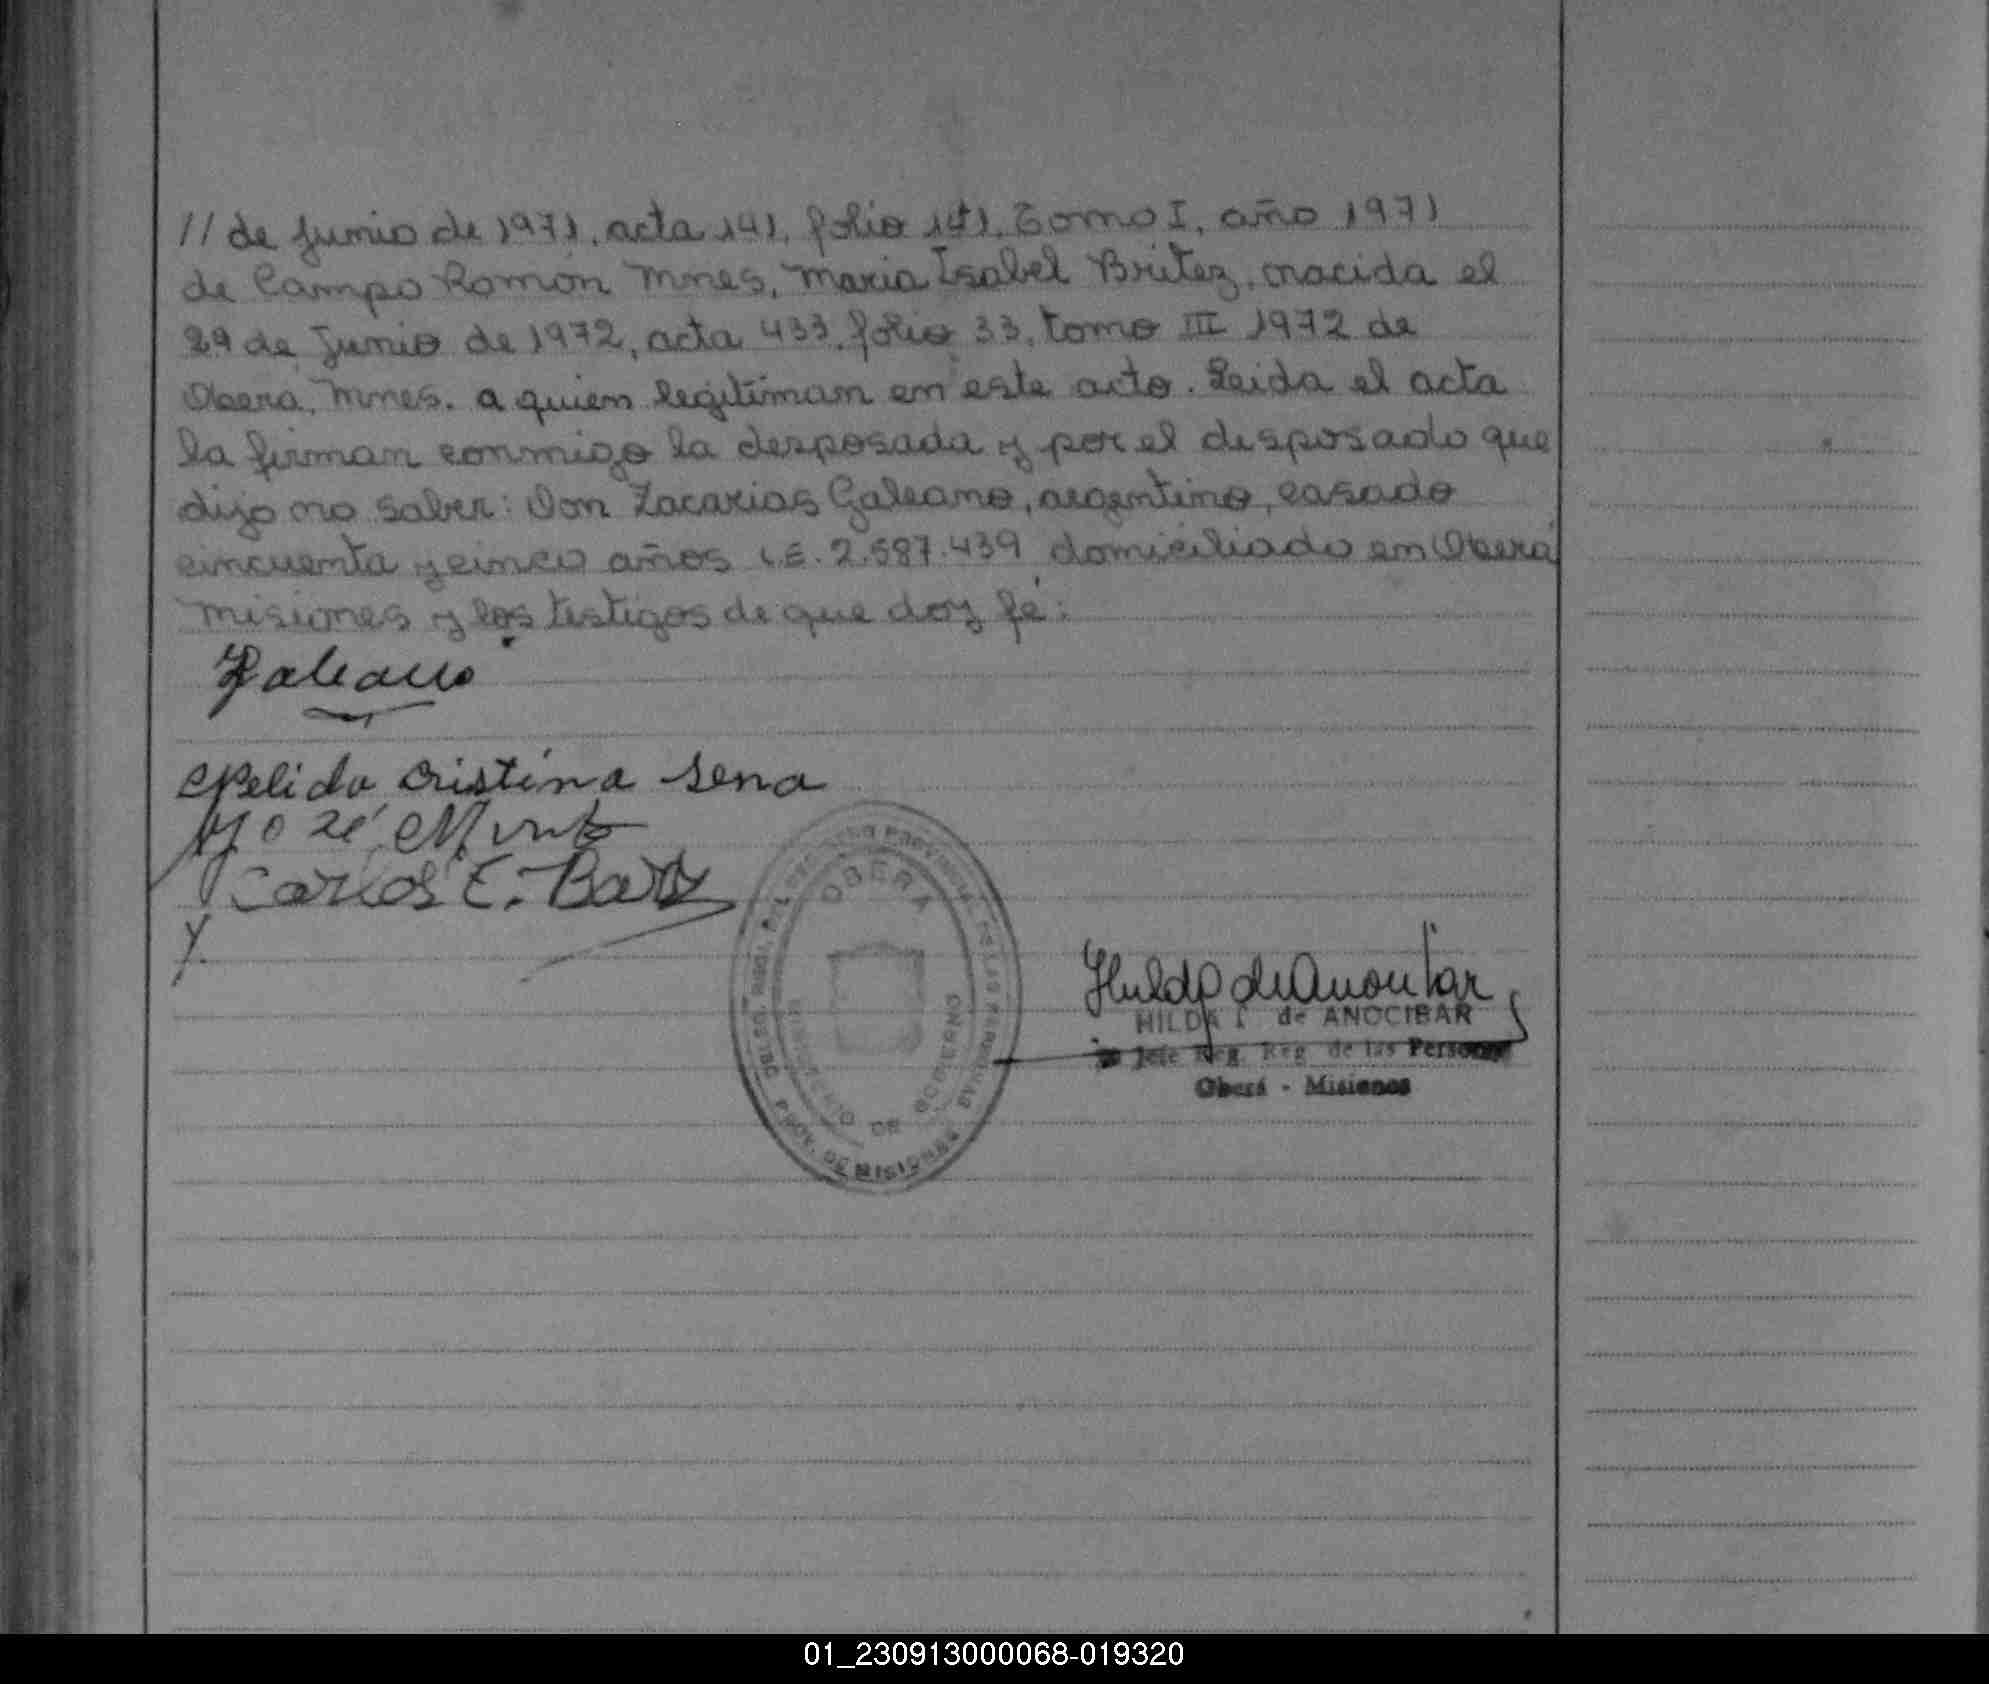 // de Junio de 1971, acta 141, folio 141, Tomo I, año 1971
de Campo Ramón Mnes, Maria Isabel Britez, nacida el
29 de Junio de 1972, acta 433, folio 33, tomo III 1972 de
Oberá, Mnes. a quien legitiman en este acto. Leida el acta
la firman conmigo la desposada y por el desposado que
dijo no saber: Don Zacarias Galeano, argentino, casado
cincuenta y cinco años L.E. 2.587.439 domiciliado en Oberá
Misiones y los testigos de que doy fé:
Galeano
Nelida Cristina Sena
José
Carlos E.
OBERA
MINISTERIO DE GOBIERNO
PROV. DE MISIONES
HILDA I. de ANOCIBAR
Jefe Reg. de las Personas
Oberá - Misiones
01_230913000068-019320